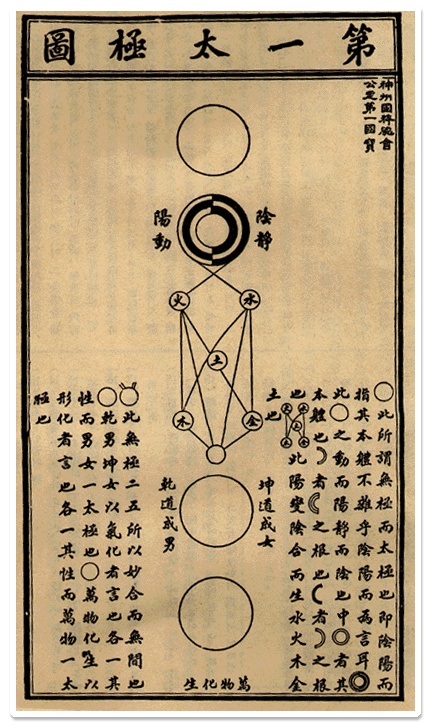 第一太極圖
神州國粹會
公定第一國寶
陰靜
陽動
水
火
土
金
木
坤道成女
乾道成男
萬物化生
○此所謂無極而太極也即陰陽而
指其本體不雜乎陰陽而為言耳◎
此○之動而陽靜而陰也中◎者其
本體也☽者☾之根也☾者☽之根
也此陽變陰合而生水火木金
土也
○此無極二五所以妙合而無間也
○乾男坤女以氣化者言也各一其
性而男女一太極也○萬物化生以
形化者言也各一其性而萬物一太
極也